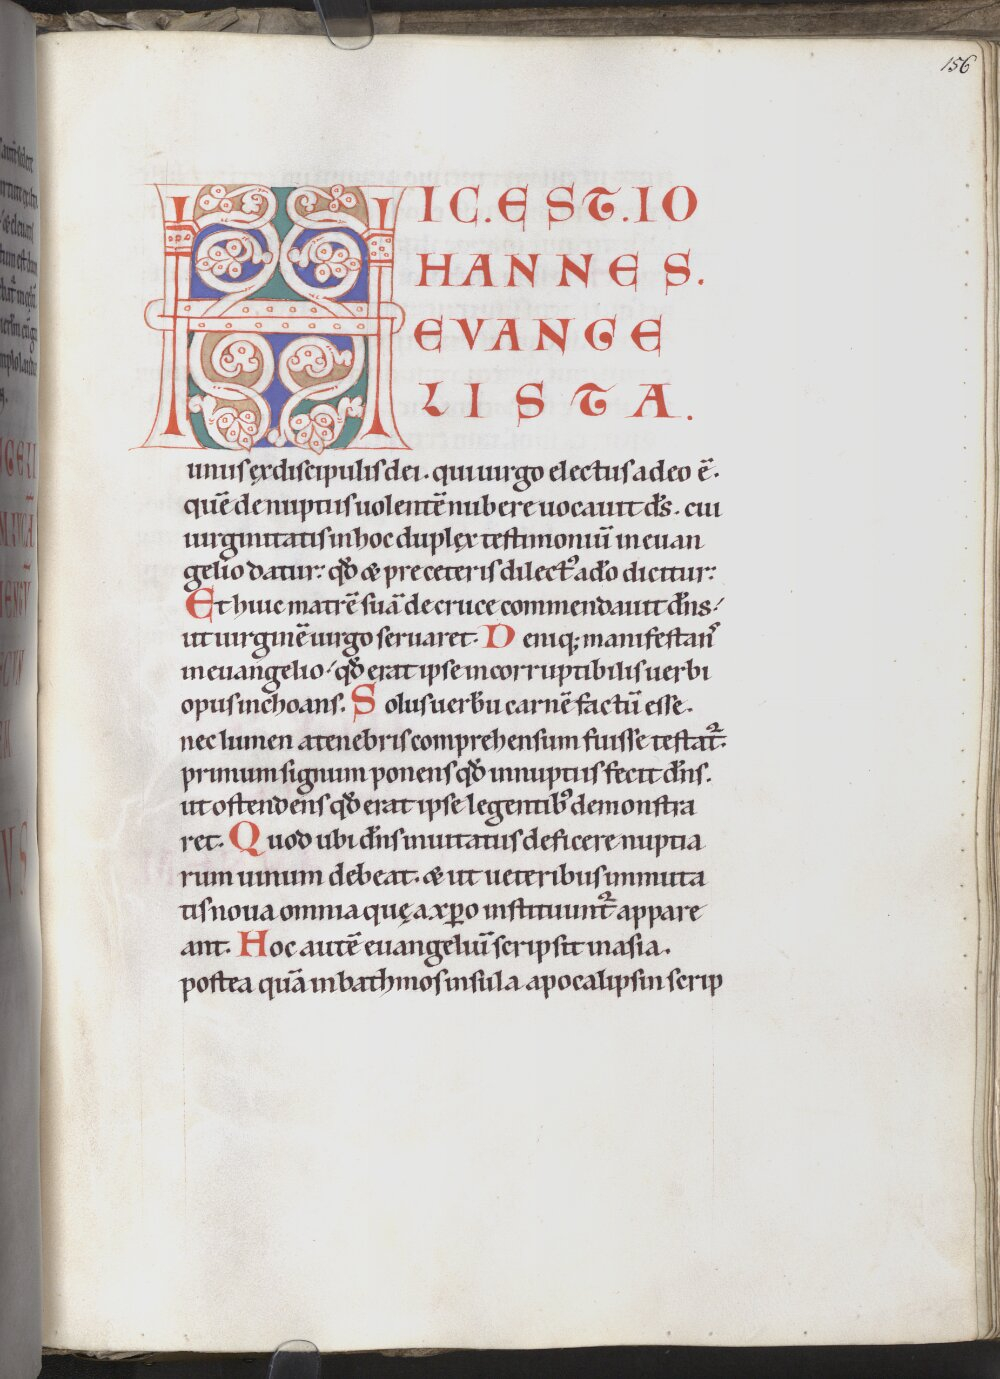 156
HIC.EST.IO
HANNES.
EVANGE
LISTA.
unus ex discipulis dei. qui uirgo electus a deo ē.
quē de nuptiis uolentē nubere uocauit ds̄. cui
uirginitatis in hoc duplex testimoniū in euan
gelio datur: qđ & pre ceteris dilectꝰ a dō dicitur:
Et huic matrē suā de cruce commendauit dn̄s:
ut uirginē uirgo seruaret. Deniq; manifestanˢ
in euangelio qđ erat ipse incorruptibilis uerbi
opus inchoans. Solus uerbū carnē factū esse.
nec lumen a tenebris comprehensum fuisse testat᷑.
primum signum ponens qđ in nuptiis fecit dn̄s.
ut ostendens qđ erat ipse legentibꝰ demonstra
ret. Quod ubi dn̄s inuitatus deficere nuptia
rum uinum debeat. & ut ueteribus immuta
tis noua omnia quę a xp̄o instituunt᷑ appare
ant. Hoc autē euangeliū scripsit in asia.
postea quā in bathmos insula apocalipsin scrip